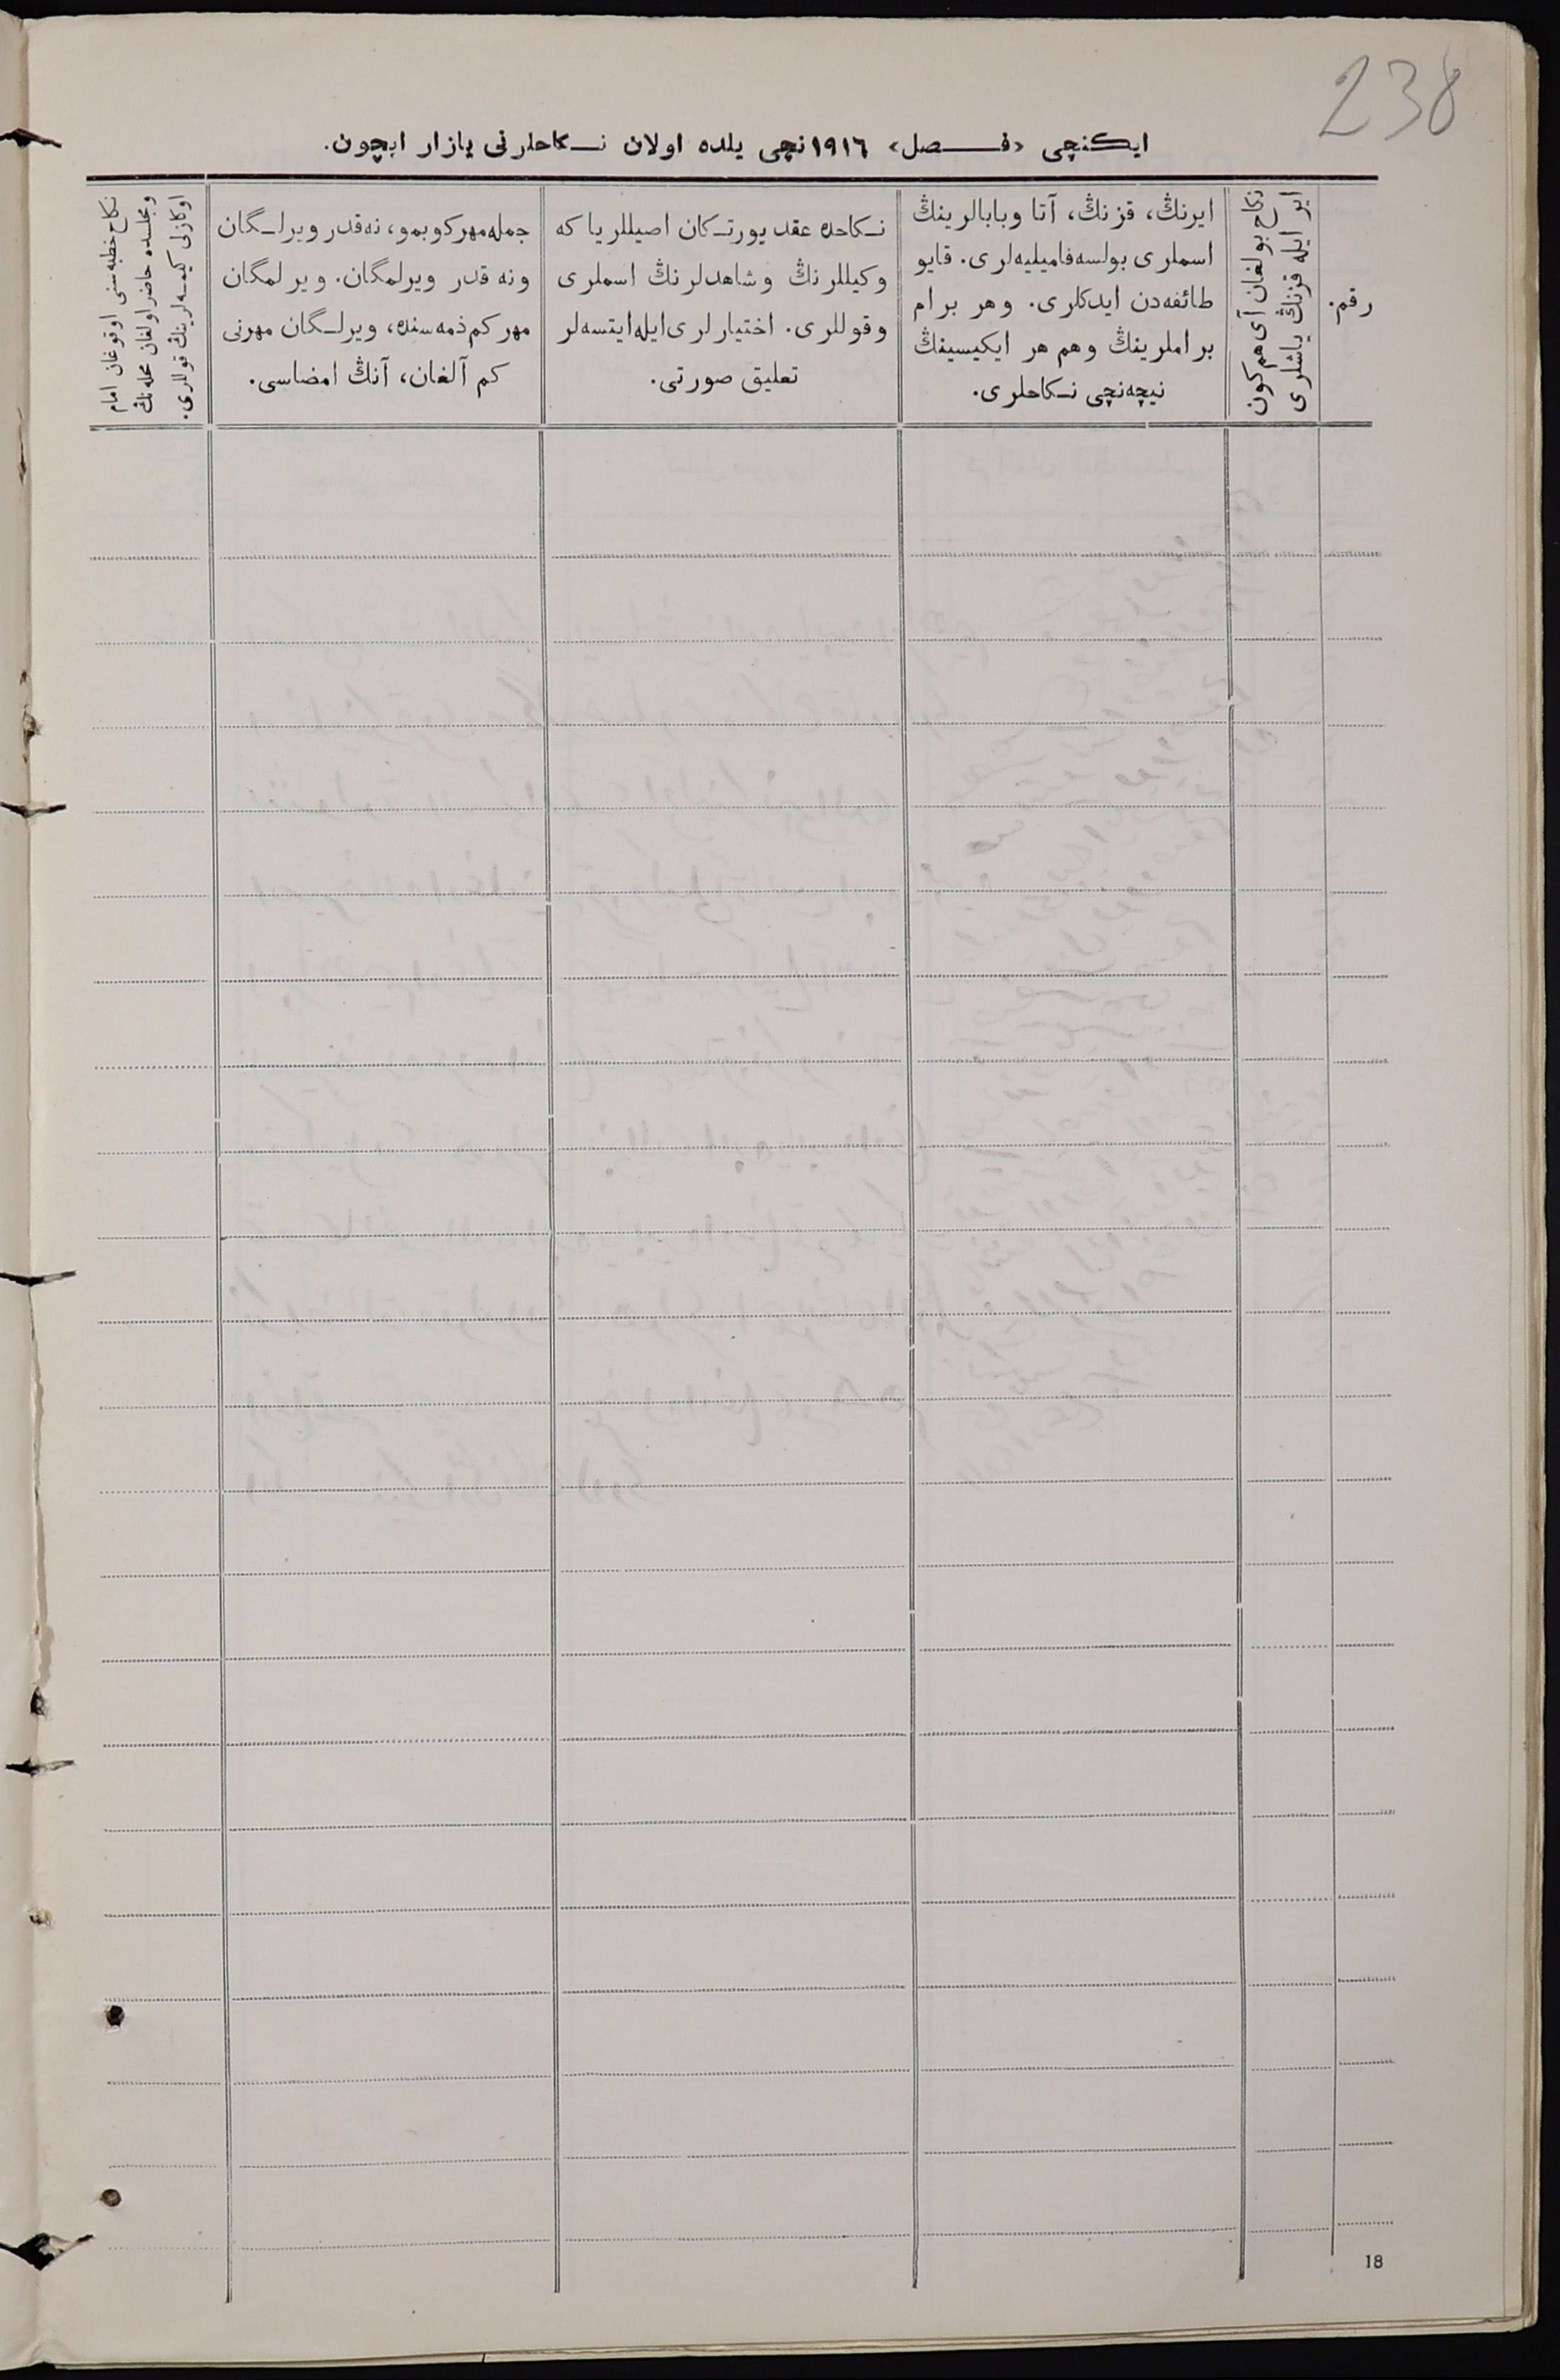 238
ایکنچی «فصل» ١٩١٦نچی یلده اولان نکاحلرنی یازار ایچون.
رقم.
نکاح بولغان آی هم کون
ایر ایله قزنڭ یاشلری
ایرنڭ، قزنڭ، آتا وبابالرینڭ
اسملری بولسه فامیلیه‌لری. قایو
طائفه‌دن ایدکلری. وهر برام
براملرینڭ وهم هر ایکیسینڭ
نیچه‌نچی نکاحلری.
نکاحده عقد یورتکان اصیللر یا که
وکیللرنڭ وشاهدلرنڭ اسملری
وقوللری. اختیارلری ایله ایتسه‌لر
تعلیق صورتی.
جمله مهر کوبمو، نه‌قدر ویرلگان
ونه قدر ویرلمگان. ویرلمگان
مهر کم ذمه‌سنده، ویرلگان مهرنی
کم آلغان، آنڭ امضاسی.
نکاح خطبه‌سنی اوقوغان امام
ومجلسده حاضر اولغان محله‌نڭ
اوکازلی کیمسه‌لرینڭ قوللری.
18